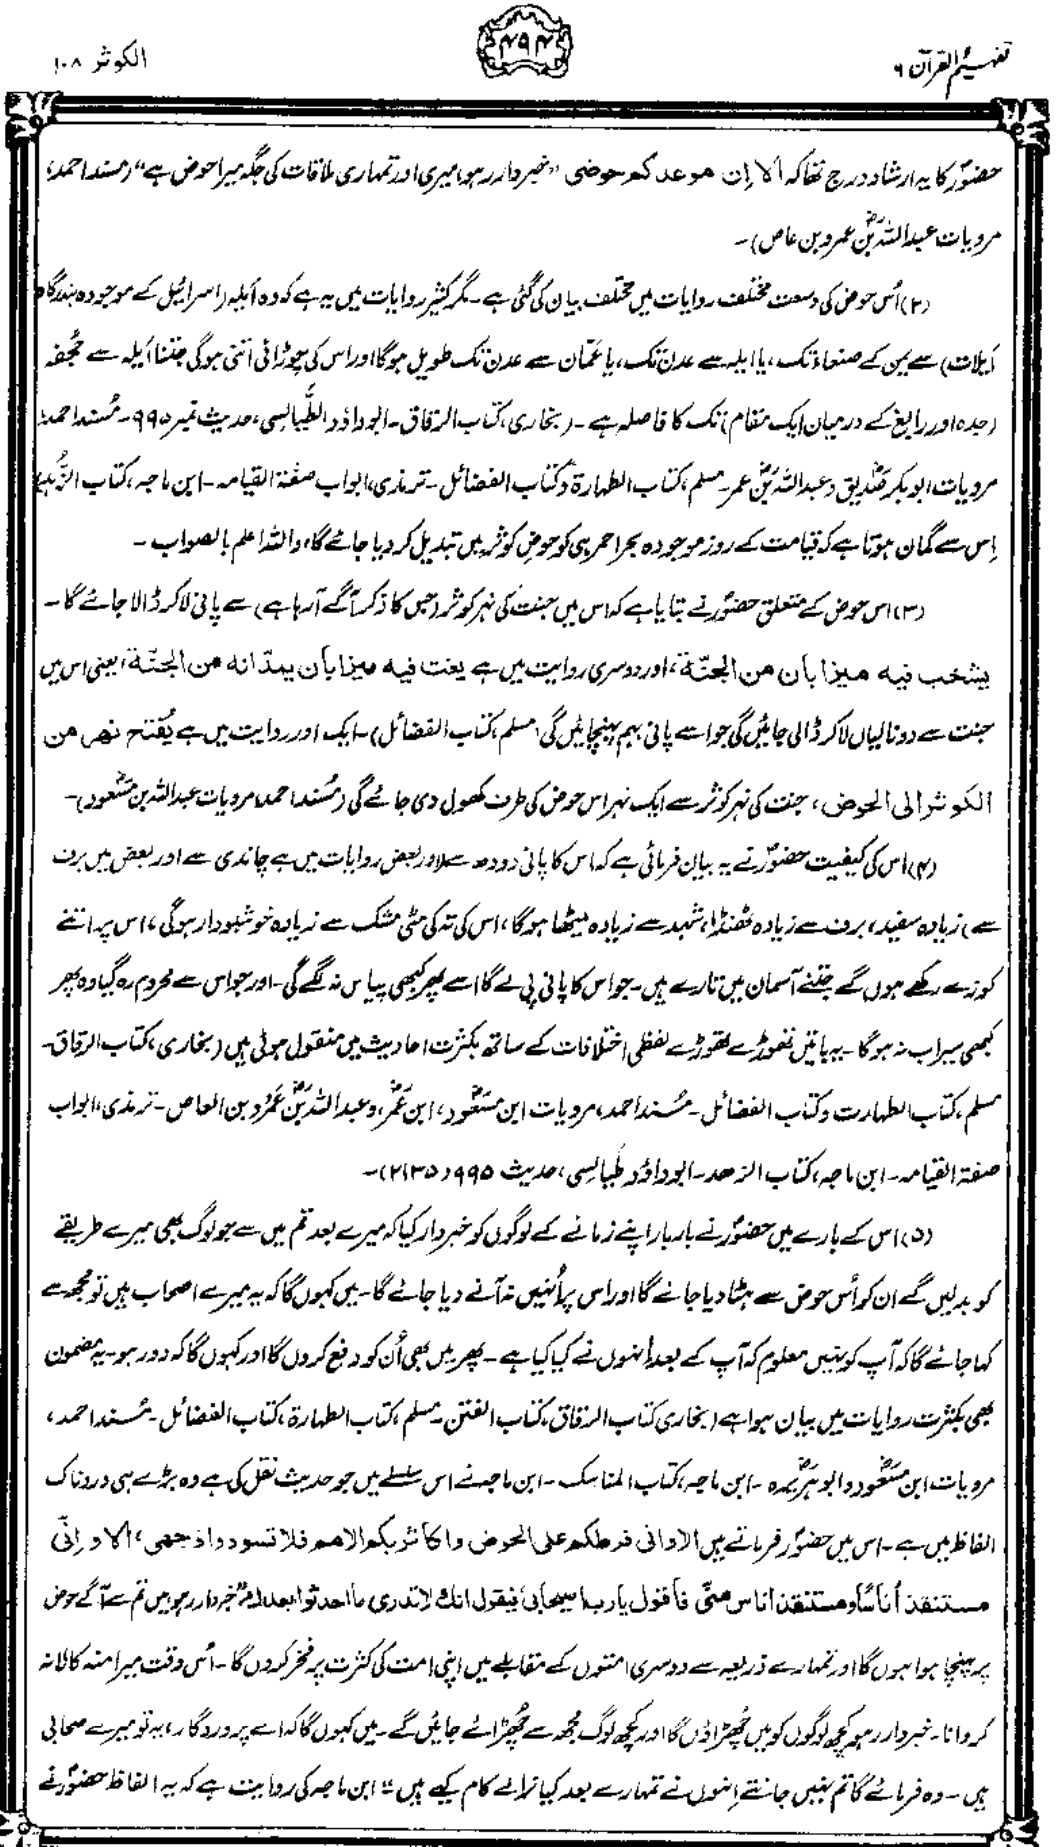 تفہیم القرآن ۶
۴۹۴
الکوثر ۱۰۸
حضورؐ کا یہ ارشاد درج تھا کہ ألا إن موعدکم حوضی ”خبردار رہو، میری اور تمہاری ملاقات کی جگہ میرا حوض ہے“ (مسند احمد،
مرویات عبداللہؓ بن عمرو بن عاص)۔
(۲) اُس حوض کی وسعت مختلف روایات میں مختلف بیان کی گئی ہے۔ مگر کثیر روایات میں یہ ہے کہ وہ اَیلہ (اسرائیل کے موجودہ بندرگاہ
اَیلات) سے یمن کے صنعاء تک، یا ایلہ سے عدن تک، یا عَمّان سے عدن تک طویل ہوگا اور اس کی چوڑائی اتنی ہوگی جتنا اَیلہ سے جُحفہ
(جدہ اور رابغ کے درمیان ایک مقام) تک کا فاصلہ ہے۔ (بخاری، کتاب الرقاق۔ ابوداؤد الطَّیالِسی، حدیث نمبر ۹۹۵۔ مُسند احمد،
مرویات ابوبکر صدّیقؓ و عبداللہؓ بن عمر۔ مسلم، کتاب الطہارۃ و کتاب الفضائل۔ ترمذی، ابواب صفۃ القیامہ۔ ابن ماجہ، کتاب الزُّہد)
اِس سے گمان ہوتا ہے کہ قیامت کے روز موجودہ بحر احمر ہی کو حوضِ کوثر میں تبدیل کر دیا جائے گا، واللہ اعلم بالصواب۔
(۳) اس حوض کے متعلق حضورؐ نے بتایا ہے کہ اس میں جنت کی نہر کوثر (جس کا ذکر آگے آ رہا ہے) سے پانی لا کر ڈالا جائے گا۔
یشخب فیه میزابان من الجنّة، اور دوسری روایت میں ہے یغت فیه میزابان یمدّانه من الجنّة، یعنی اس میں
جنت سے دو نالیاں لا کر ڈالی جائیں گی جو اسے پانی بہم پہنچائیں گی (مسلم، کتاب الفضائل)۔ ایک اور روایت میں ہے یُفتح نھر من
الکوثر الی الحوض، جنت کی نہر کوثر سے ایک نہر اس حوض کی طرف کھول دی جائے گی (مُسند احمد، مرویات عبداللہ بن مسعودؓ)۔
(۴) اس کی کیفیت حضورؐ نے یہ بیان فرمائی ہے کہ اس کا پانی دودھ سے (اور بعض روایات میں ہے چاندی سے اور بعض میں برف
سے) زیادہ سفید، برف سے زیادہ ٹھنڈا، شہد سے زیادہ میٹھا ہوگا، اس کی تہ کی مٹی مشک سے زیادہ خوشبودار ہوگی، اس پر اتنے
کوزے رکھے ہوں گے جتنے آسمان میں تارے ہیں۔ جو اس کا پانی پی لے گا اسے پھر کبھی پیاس نہ لگے گی۔ اور جو اس سے محروم رہ گیا وہ پھر
کبھی سیراب نہ ہوگا۔ یہ باتیں تھوڑے تھوڑے لفظی اختلافات کے ساتھ بکثرت احادیث میں منقول ہوئی ہیں (بخاری، کتاب الرقاق۔
مسلم، کتاب الطہارت و کتاب الفضائل۔ مُسند احمد، مرویات ابن مسعودؓ، ابن عمرؓ، و عبداللہؓ بن عَمْرو بن العاص۔ ترمذی، ابواب
صفۃ القیامہ۔ ابن ماجہ، کتاب الزھد۔ ابوداؤد طیالِسی، حدیث ۹۹۵، ۲۱۳۵)۔
(۵) اس کے بارے میں حضورؐ نے بار بار اپنے زمانے کے لوگوں کو خبردار کیا کہ میرے بعد تم میں سے جو لوگ بھی میرے طریقے
کو بدلیں گے ان کو اُس حوض سے ہٹا دیا جائے گا اور اس پر اُنہیں نہ آنے دیا جائے گا۔ میں کہوں گا کہ یہ میرے اصحاب ہیں تو مجھ سے
کہا جائے گا کہ آپ کو نہیں معلوم کہ آپ کے بعد اِنہوں نے کیا کیا ہے۔ پھر میں بھی اُن کو دفع کروں گا اور کہوں گا کہ دور ہو۔ یہ مضمون
بھی بکثرت روایات میں بیان ہوا ہے (بخاری کتاب الرقاق، کتاب الفتن۔ مسلم، کتاب الطہارۃ، کتاب الفضائل۔ مُسند احمد،
مرویات ابن مسعودؓ و ابو ہریرہؓ۔ ابن ماجہ، کتاب المناسک۔ ابن ماجہ نے اس سلسلے میں جو حدیث نقل کی ہے وہ بڑے ہی دردناک
الفاظ میں ہے۔ اس میں حضورؐ فرماتے ہیں الا وانی فرطکم علی الحوض و اکاثر بکم الامم فلا تسودوا وجھی، الا و إنّی
مستنقذ أناسًا و مستنقذ اناس منّی فأقول یا رب اصیحابی، فیقول انك لا تدری ما احدثوا بعدك ”خبردار رہو، میں تم سے آگے حوض
پر پہنچا ہوا ہوں گا اور تمہارے ذریعہ سے دوسری امتوں کے مقابلے میں اپنی امت کی کثرت پر فخر کروں گا۔ اُس وقت میرا منہ کالا نہ
کروانا۔ خبردار رہو، کچھ لوگوں کو میں چُھڑاؤں گا اور کچھ لوگ مجھ سے چُھڑائے جائیں گے۔ میں کہوں گا کہ اے پروردگار، یہ تو میرے صحابی
ہیں۔ وہ فرمائے گا تم نہیں جانتے اِنہوں نے تمہارے بعد کیا نرالے کام کیے ہیں“ ابن ماجہ کی روایت ہے کہ یہ الفاظ حضورؐ نے